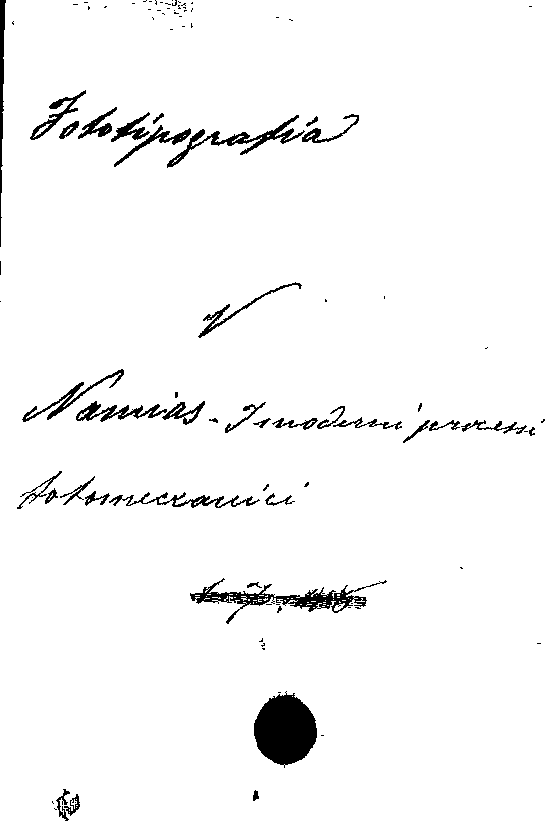 Fototipografia
V
Namias - I moderni processi
fotomeccanici